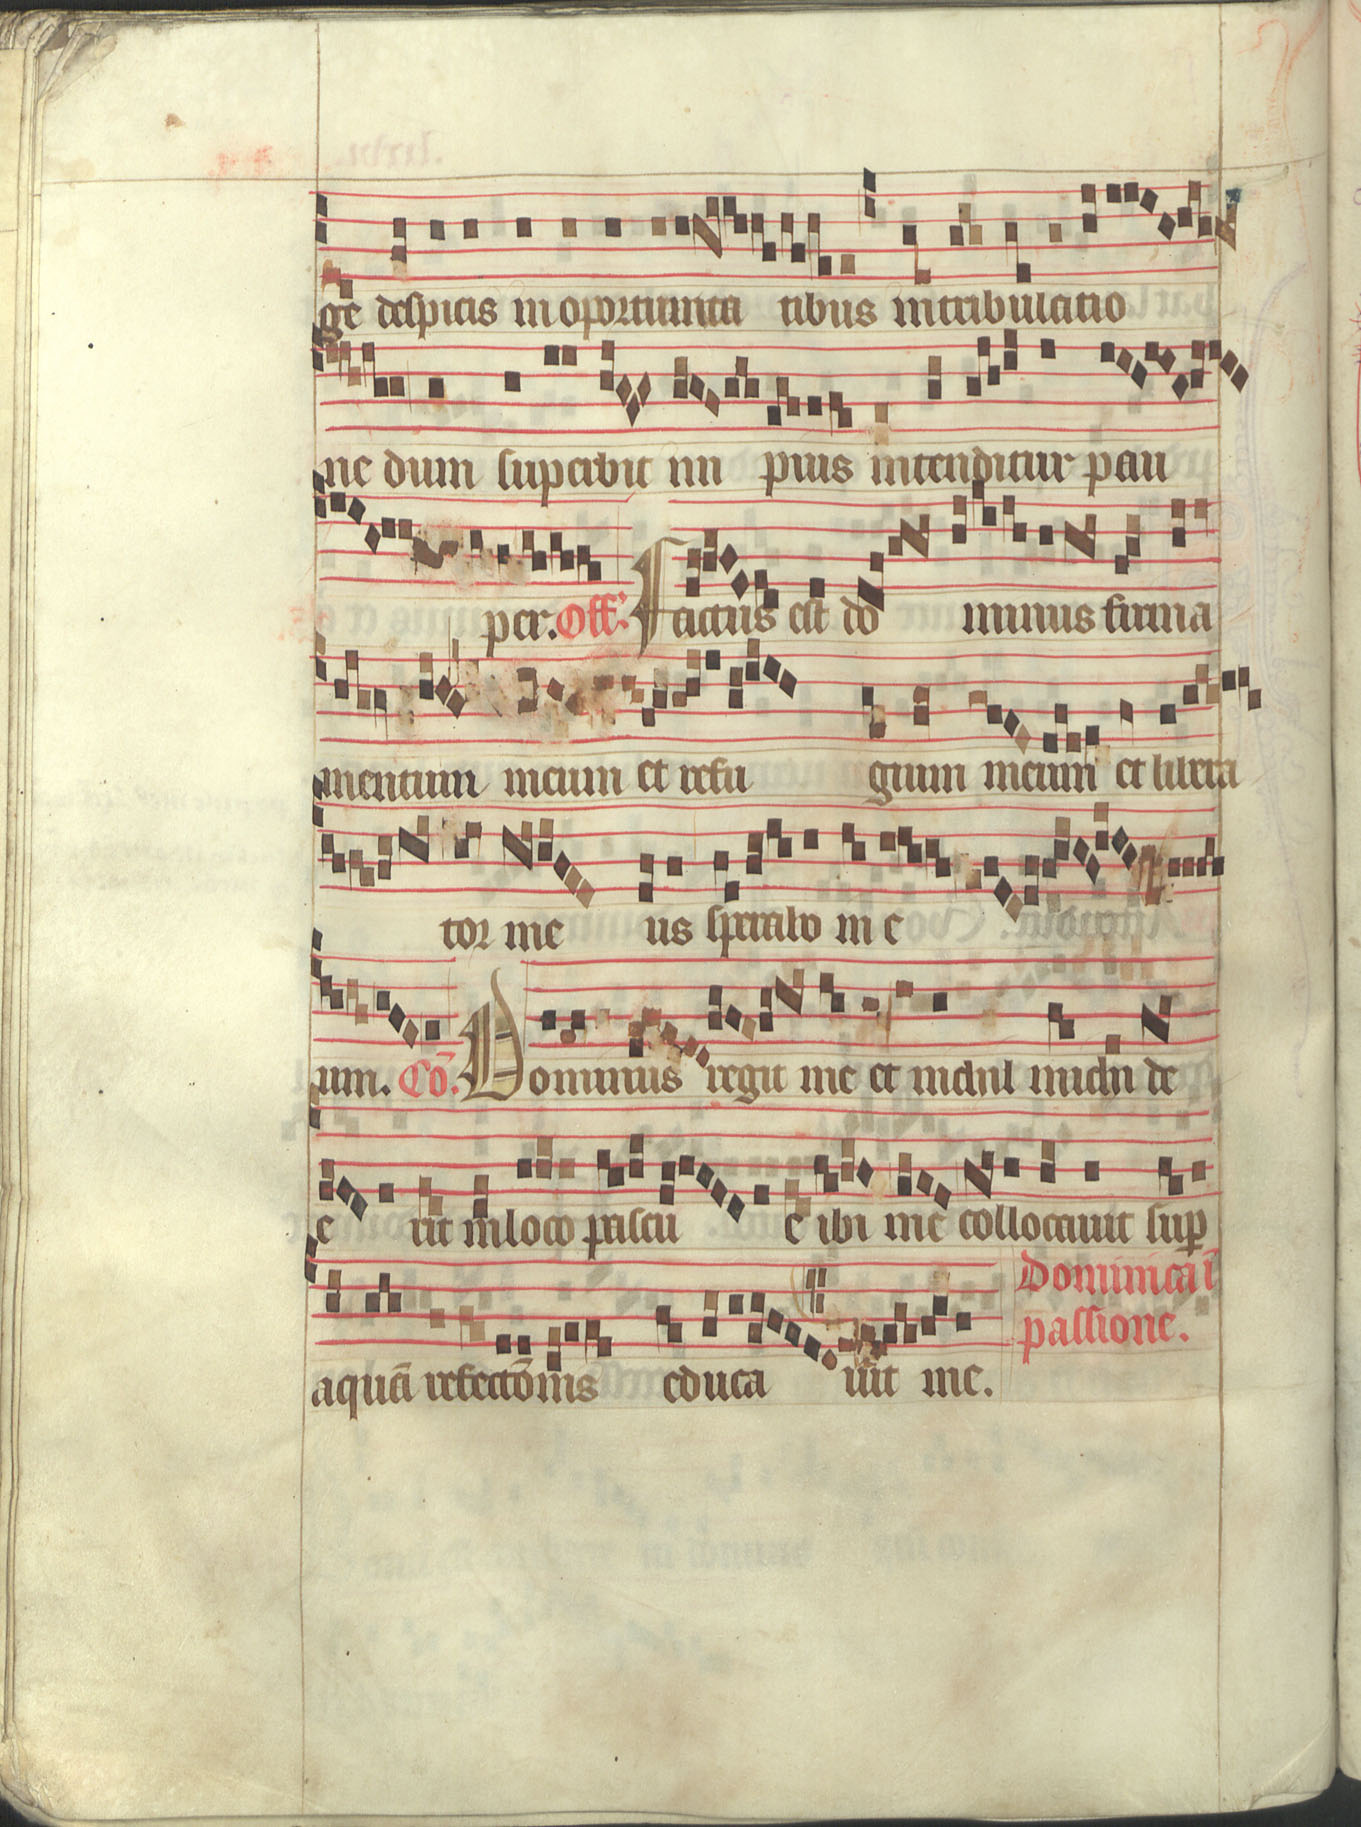 ge despicis inoportunita tibus intribulatio
ne dum superbit im pius intenditur pau
per. Off. Factus est do minus firma
mentum meum et refu gium meum et libera
tor me us sperabo in e
um. Cō. Dominus regit me et nichil michi de
e rit in loco pascu e ibi me collocauit sup
aquā refectōnis educa uit me. Dominica ī
passione.